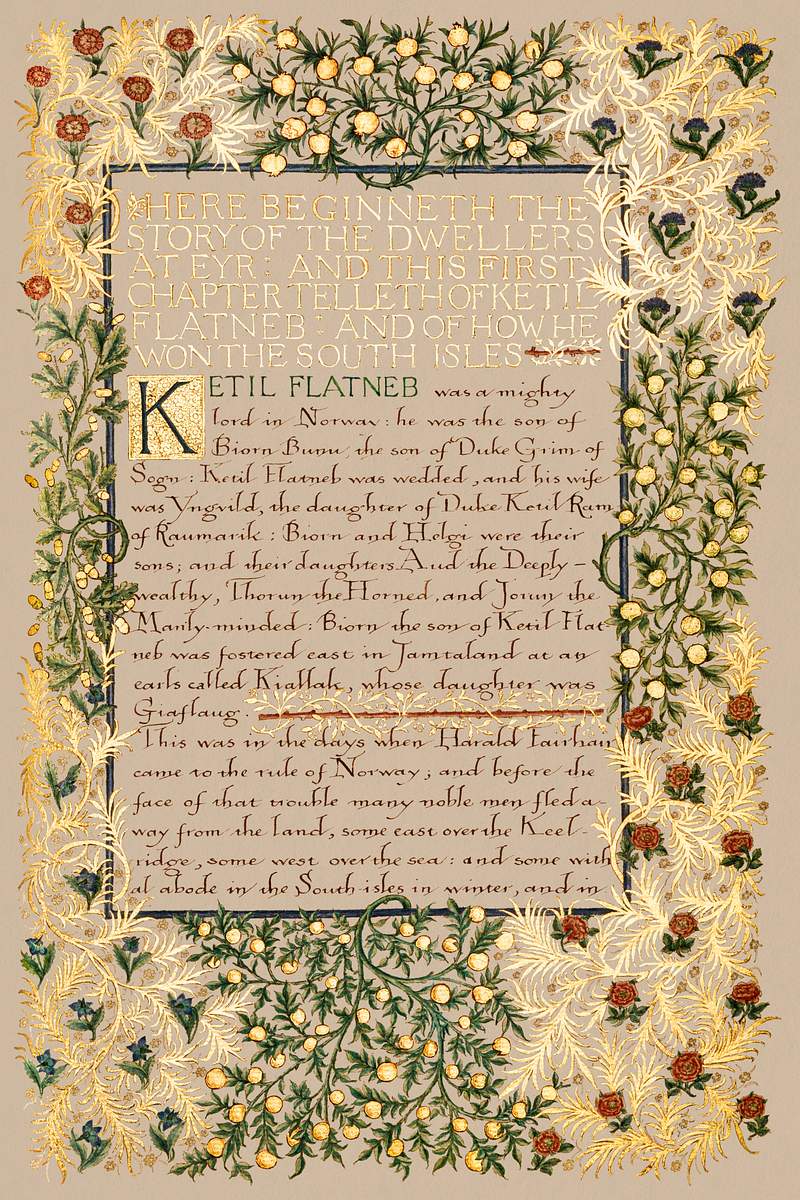 HERE BEGINNETH THE
STORY OF THE DWELLERS
AT EYR: AND THIS FIRST
CHAPTER TELLETH OF KETIL
FLATNEB: AND OF HOW HE
WON THE SOUTH ISLES
KETIL FLATNEB was a mighty
lord in Norway: he was the son of
Biorn Bunu, the son of Duke Grim of
Sogn: Ketil Flatneb was wedded, and his wife
was Yngvild, the daughter of Duke Ketil Ram
of Raumarik: Biorn and Helgi were their
sons; and their daughters Aud the Deeply-
wealthy, Thorun the Horned, and Jorun the
Manly-minded: Biorn the son of Ketil Flat-
neb was fostered east in Jamtaland at an
earls called Kiallak, whose daughter was
Giaflaug.
This was in the days when Harald Fairhair
came to the rule of Norway; and before the
face of that trouble many noble men fled a-
way from the land, some east over the Keel-
ridge, some west over the sea: and some with
al abode in the South-isles in winter, and in